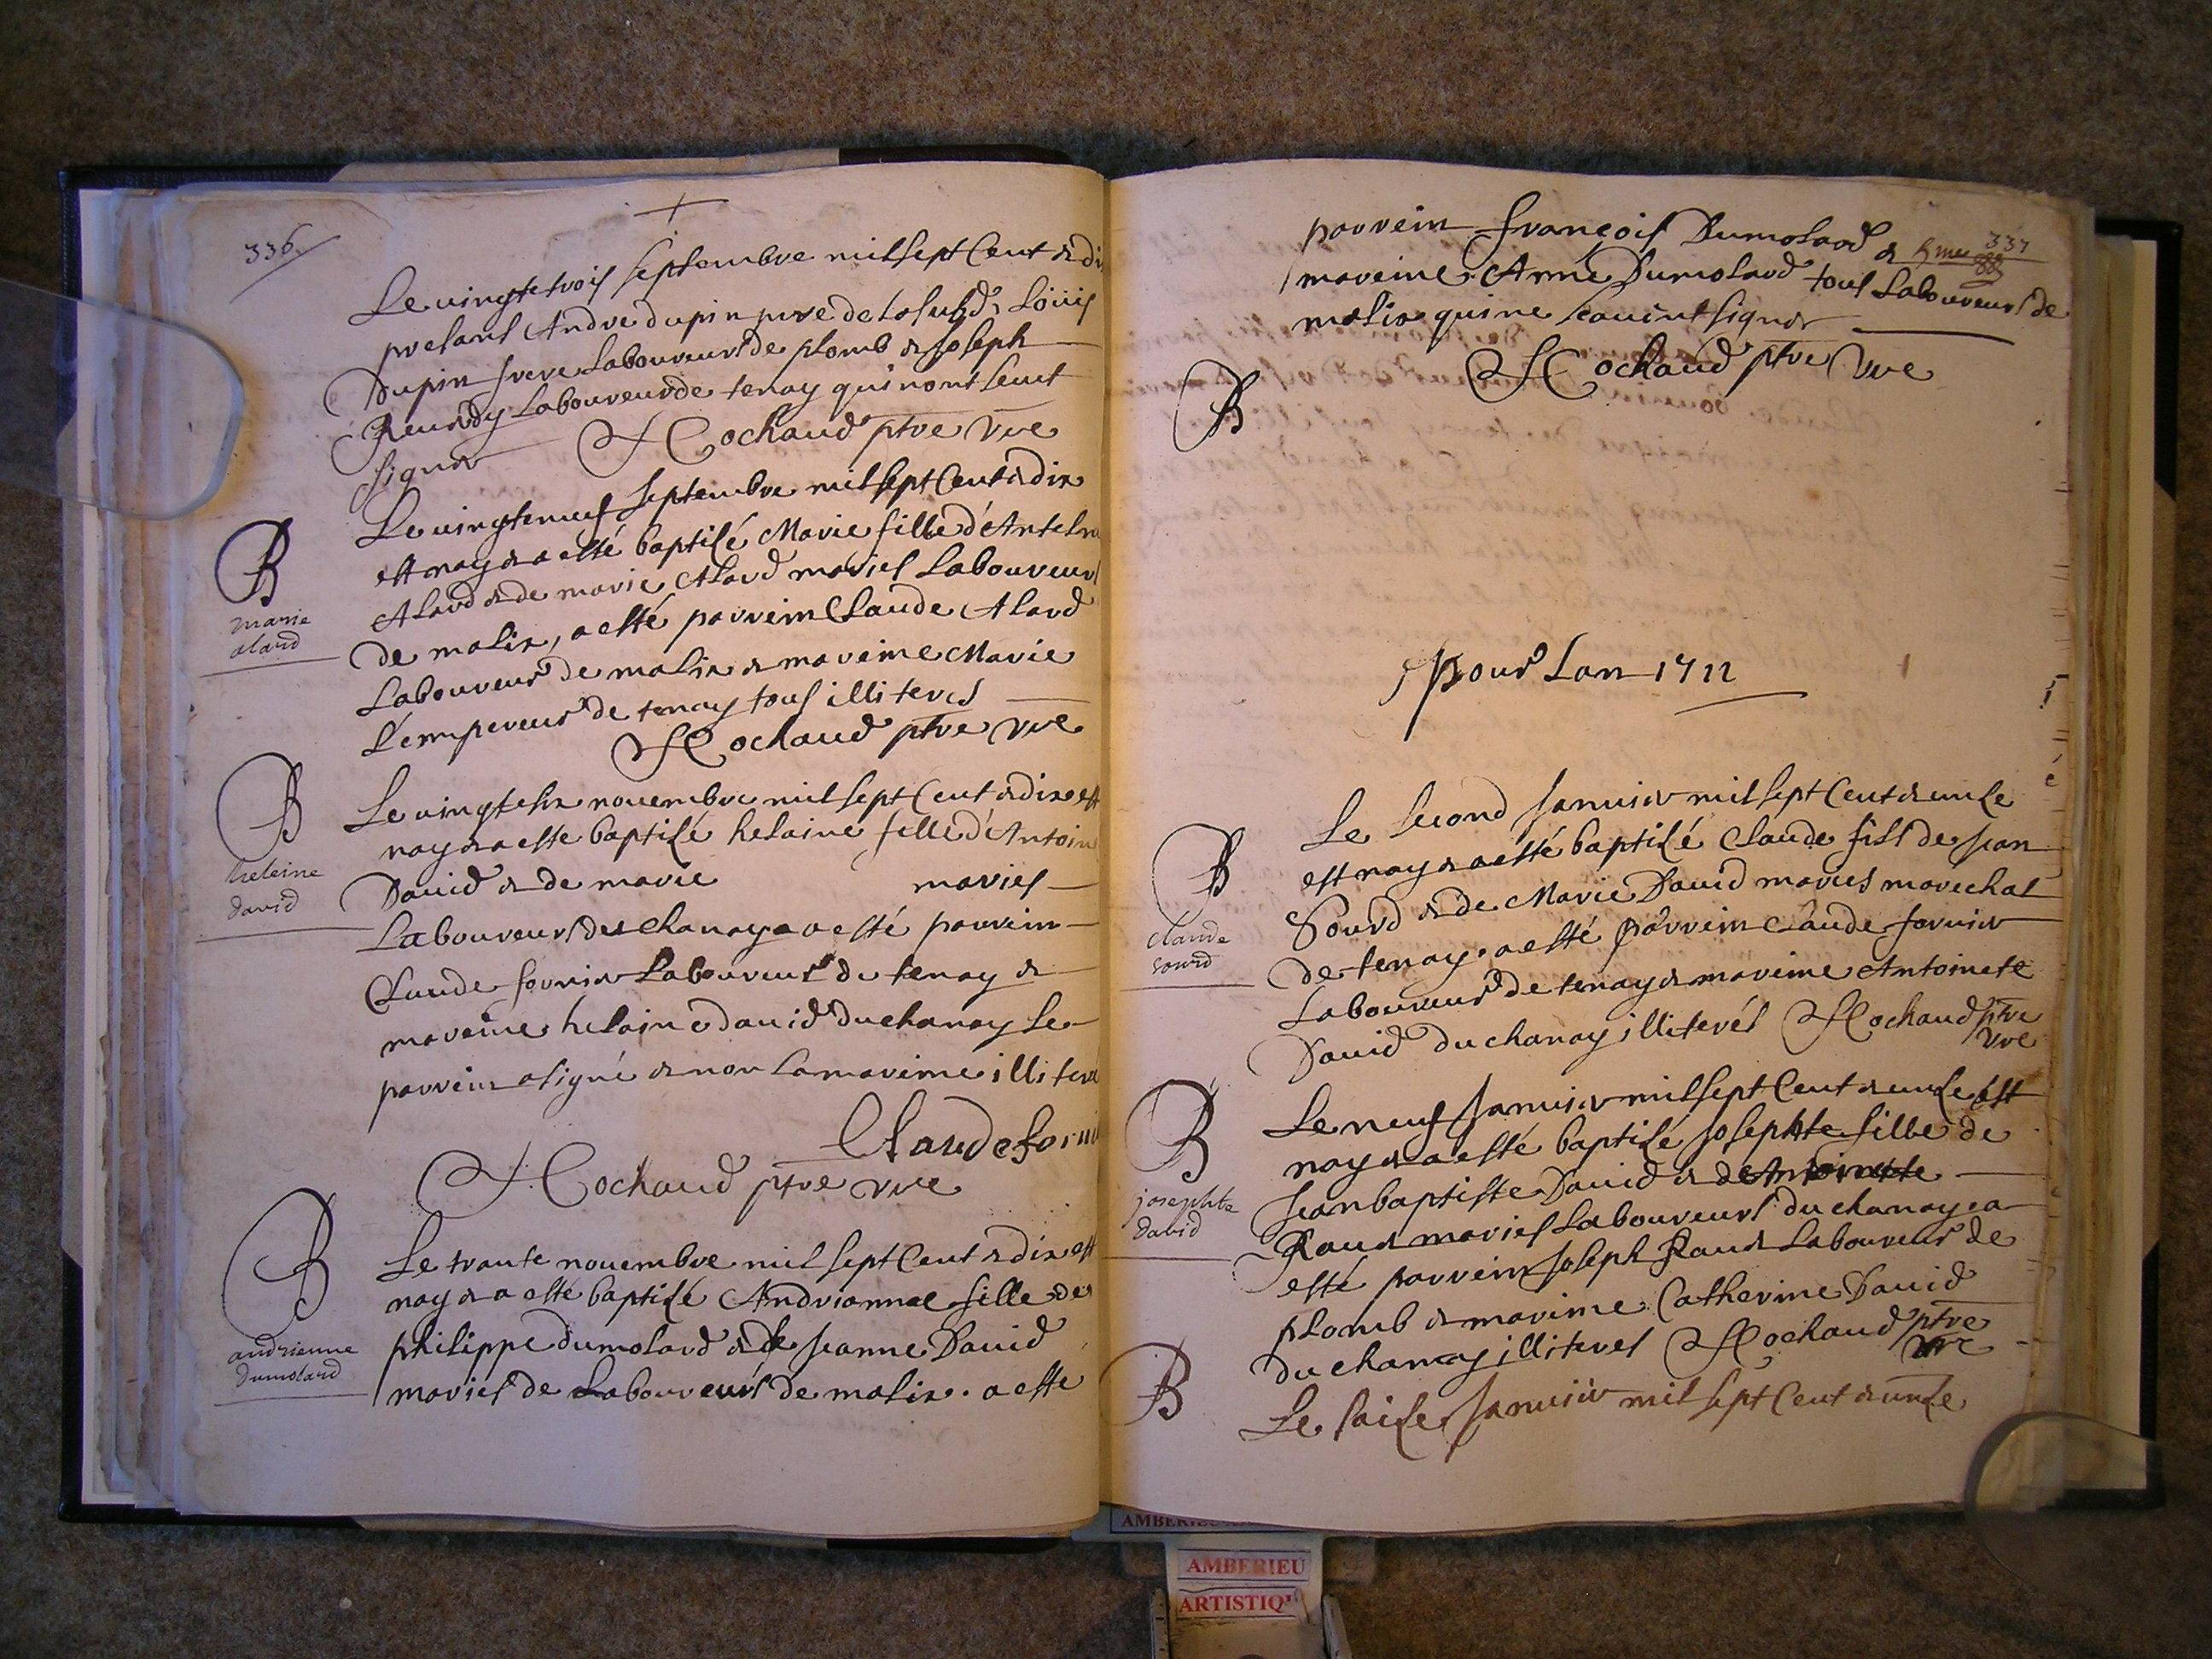 336
Le vingtetrois septembre mil sept Cent & di
presant Andre dupin pere de la susd. Loüis
Dupin frere Laboureurs de plomb & Joseph
Laboureur de tenay qui nont sceut
signer H Cochaud ptre vre
Le vingteneuf septembre mil sept Cent & dix
est nay & a esté baptisé Marie fille d'Antelm
Alard & de marie Alard mariés Laboureurs
de malix, a esté parrein Claude Alard
Laboureur de malix & mareine Marie
L'empereur de tenay tous illiteres
H Cochaud ptre vre
B
marie
alard
Le vingtesix novembre mil sept Cent & dix est
nay & a esté baptisé helaine fille d'Antoin
David & de marie mariés
Laboureurs du chanay a esté parrein
Claude fornier Laboureur de tenay &
mareine helaine david du chanay Le
parrein a signé & non la mareine illitere
Claude forni
H Cochaud ptre vre
B
heleine
david
Le trante novembre mil sept Cent & dix est
nay & a esté baptisé Andrianne fille de
philippe dumolard & de Jeanne David
mariés de Laboureurs de malix. a este
B
andrienne
dumolard
337
parrein françois Dumolard &
mareine Anne Dumolard tous Laboureurs de
malix qui ne scavent signer
H Cochaud ptre vre
B
Pour Lan 1711
Le second Janvier mil sept Cent & unze
est nay & a esté baptisé Claude fils de Jean
Sourd & de Marie David mariés marechal
de tenay. a esté parrein Claude fornier
Laboureur de tenay & mareine Antoinete
David du chanay illiterés H Cochaud ptre
vre
B
Claude
sourd
Le neuf Janvier mil sept Cent & unze est
nay & a esté baptisé Josephte fille de
Jean baptiste David & de Antoinette
mariés Laboureurs du chanay a
esté parrein Joseph Laboureur de
plomb & mareine Catherine David
du chanay illiteres H Cochaud ptre
vre
B
josephte
david
B
Le saize Janvier mil sept Cent & unze
AMBERIEU
ARTISTIQ